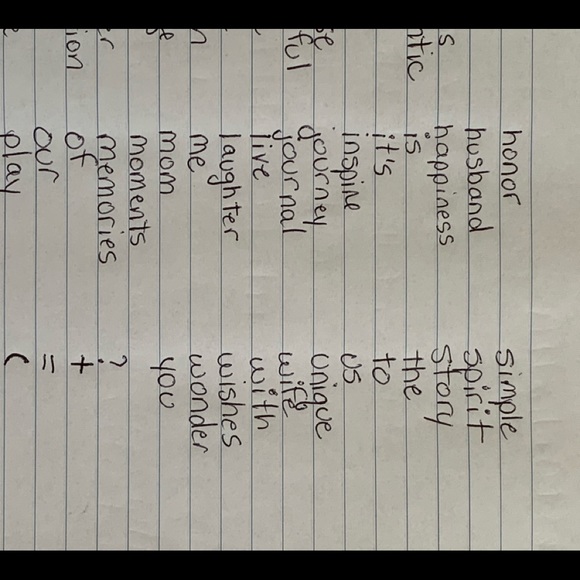 honor simple
husband spirit
s happiness story
ntic is the
it's to
inspire us
se journey unique
ful journal wife
live with
laughter wishes
n me wonder
mom you
moments
er memories ?
ion of +
our =
play (